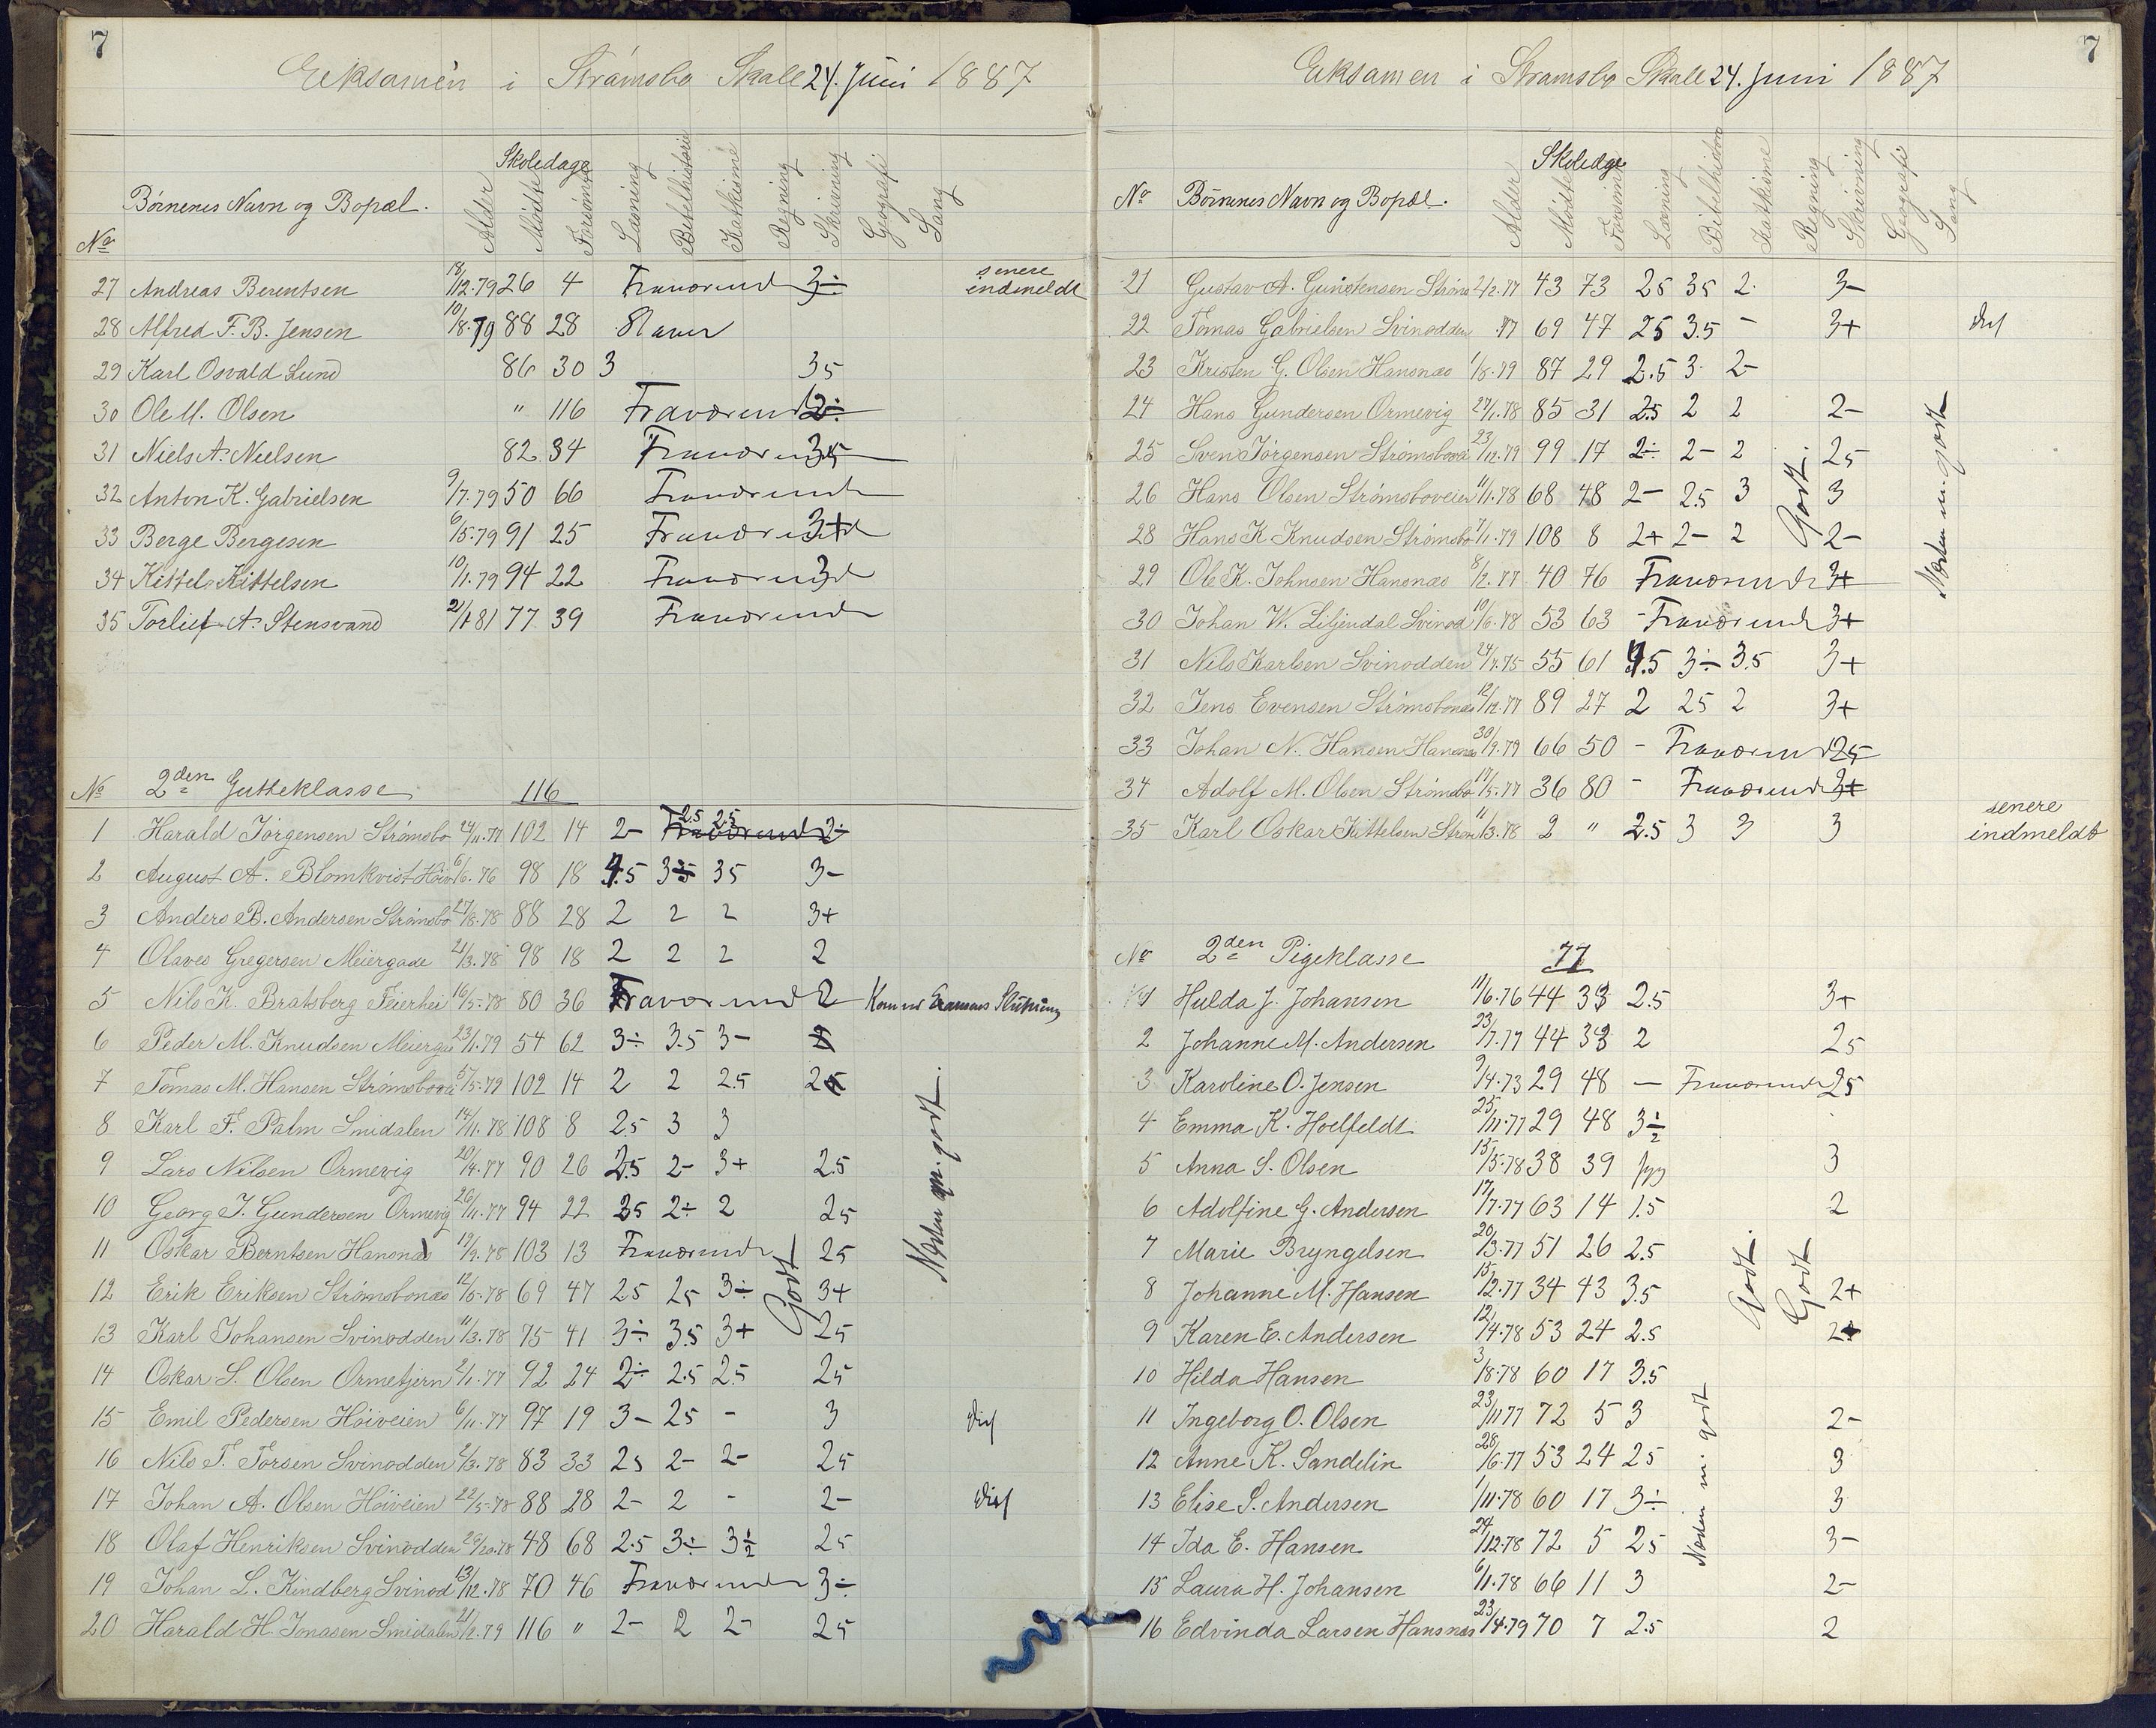 7
Eeksamen i Strømsbo Skole 24. Juni 1887
No Børnenes Navn og Bopæl. Alder Skoledage Mødte Forsømte Læsning Bibelhistorie Katkisme Regning Skrivning Geografi Sang
27 Andreas Berentsen 18/12.79 26 4 Fraværende 3÷ senere indmeldt
28 Alfred F. B. Jensen 10/8.79 88 28
29 Karl Osvald Lund 86 30 3 35
30 Ole M. Olsen " 116 Fraværende 2÷
31 Niels A. Nielsen 82 34 Fraværende 35
32 Anton K. Gabrielsen 9/7.79 50 66 Fraværende
33 Berge Bergesen 6/5.79 91 25 Fraværende 3+
34 Kittel Kittelsen 10/11.79 94 22 Fraværende 3
35 Torlief A. Stensvand 21/1 81 77 39 Fraværende
No 2den Gutteklasse 116
1 Harald Jørgensen Strømsbo 24/11.77 102 14 2- Fraværende 2.5 2.5 2÷
2 August A. Blomkvist Høiv 6/6.76 98 18 4.5 3.5 35 3-
3 Anders B. Andersen Strømsbo 27/8.78 88 28 2 2 2 3+
4 Olaves Gregersen Meiergade 21/3.78 98 18 2 2 2 2
5 Nils K. Bratsberg Feierhei 16/5.78 80 36 Fraværende 2 Kom ved Examens Slutning
6 Peder M. Knudsen Meierga 23/11.79 54 62 3÷ 3.5 3-
7 Tomas M. Hansen Strømsbo 5.79 102 14 2 2 2.5 25
8 Karl F. Palm Smidalen 14/11.78 108 8 2.5 3 3
9 Lars Nilsen Ormevig 20/4.77 90 26 2.5 2- 3+ 2.5
10 Georg T. Gundersen Ormevig 26/11.77 94 22 35 2÷ 2 25
11 Oskar Berntsen Hansnæs 19/9.78 103 13 Fraværende 25
12 Erik Eriksen Strømsbonæs 12/5.78 69 47 25 25 3÷ 3+
13 Karl Johansen Svinodden 11/3.78 75 41 3÷ 3.5 3+ 25
14 Oskar S. Olsen Ormetjern 2/1.77 92 24 2÷ 2.5 2.5 25
15 Emil Pedersen Höiveien 6/11.77 97 19 3- 25 - 3
16 Nils T. Torsen Svinodden 2/3.78 83 33 25 2- 2- 25
17 Johan A. Olsen Höiveien 22/5.78 88 28 2- 2 - 2-
18 Olaf Henriksen Svinodden 26/10.78 48 68 2.5 3÷ 3½ 25
19 Johan L. Kindberg Svinod 13/12.78 70 46 Fraværende 3÷
20 Harald H. Jonasen Smidalen 21/2.79 116 " 2- 2 2- 25
Godt
Næsten m. godt.
7
Eeksamen i Strømsbo Skole 24. Juni 1887
No Børnenes Navn og Bopæl. Alder Skoledage Mødte Forsømte Læsning Bibelhistorie Katkisme Regning Skrivning Geografi Sang
21 Gustav A. Gunstensen Strøms 2/2.77 43 73 25 35 2. 3-
22 Tomas Gabrielsen Svinodden .77 69 47 25 3.5 - 3+
23 Kristen G. Olsen Hansnæs 1/8.79 87 29 2.5 3 2-
24 Hans Gundersen Ormevig 27/1.78 85 31 2.5 2 2 2-
25 Sven Jørgensen Strømsbo 23/12.79 99 17 2÷ 2- 2 25
26 Hans Olsen Strømsboveien 11/1.78 68 48 2- 2.5 3 3
28 Hans K Knudsen Strømsbo 7/1.79 108 8 2+ 2- 2 2-
29 Ole K. Johnsen Hansnæs 8/2.77 40 76 Fraværende 3+
30 Johan W. Liljendal Svinod 10/6.78 53 63 - Fraværende 3+
31 Nils Karlsen Svinodden 24/7.75 55 61 4.5 3÷ 3.5 3+
32 Jens Evensen Strømsbonæs 12/12.77 89 27 2 25 2 3+
33 Johan N. Hansen Hansnæs 30/9.79 66 50 - Fraværende 25
34 Adolf M. Olsen Strømsbo 17/5.77 36 80 - Fraværende 3+
35 Karl Oskar Kittelsen Strøm 11/3.78 2 " 2.5 3 3 3 senere indmeldt
Godt.
Næsten m. godt
No 2den Pigeklasse 77
1 Hulda J. Johansen 11/6.76 44 33 2.5 3+
2 Johanne M. Andersen 23/7.77 44 33 2 25
3 Karoline O. Jensen 9/4.73 29 48 - Fraværende 25
4 Emma K. Hoelfeldt 25/11.77 29 48 3½
5 Anna S. Olsen 15/5.78 38 39 3
6 Adolfine G. Andersen 17/7.77 63 14 1.5 2
7 Marie Bryngelsen 20/3.77 51 26 2.5
8 Johanne M. Hansen 15/12.77 34 43 3.5 2+
9 Karen E. Andersen 12/4.78 53 24 2.5 2+
10 Hilda Hansen 3/8.78 60 17 3.5
11 Ingeborg O. Olsen 23/11 77 72 5 3 2-
12 Anne K. Sandelin 28/6.77 53 24 25 3
13 Elise S. Andersen 1/11.78 60 17 3÷ 3
14 Ida E. Hansen 24/12.78 72 5 25 3-
15 Laura H. Johansen 6/1.78 66 11 3 2-
16 Edvinda Larsen Hansnæs 23/4.79 70 7 2.5 2
Godt.
Godt
Næsten m. godt